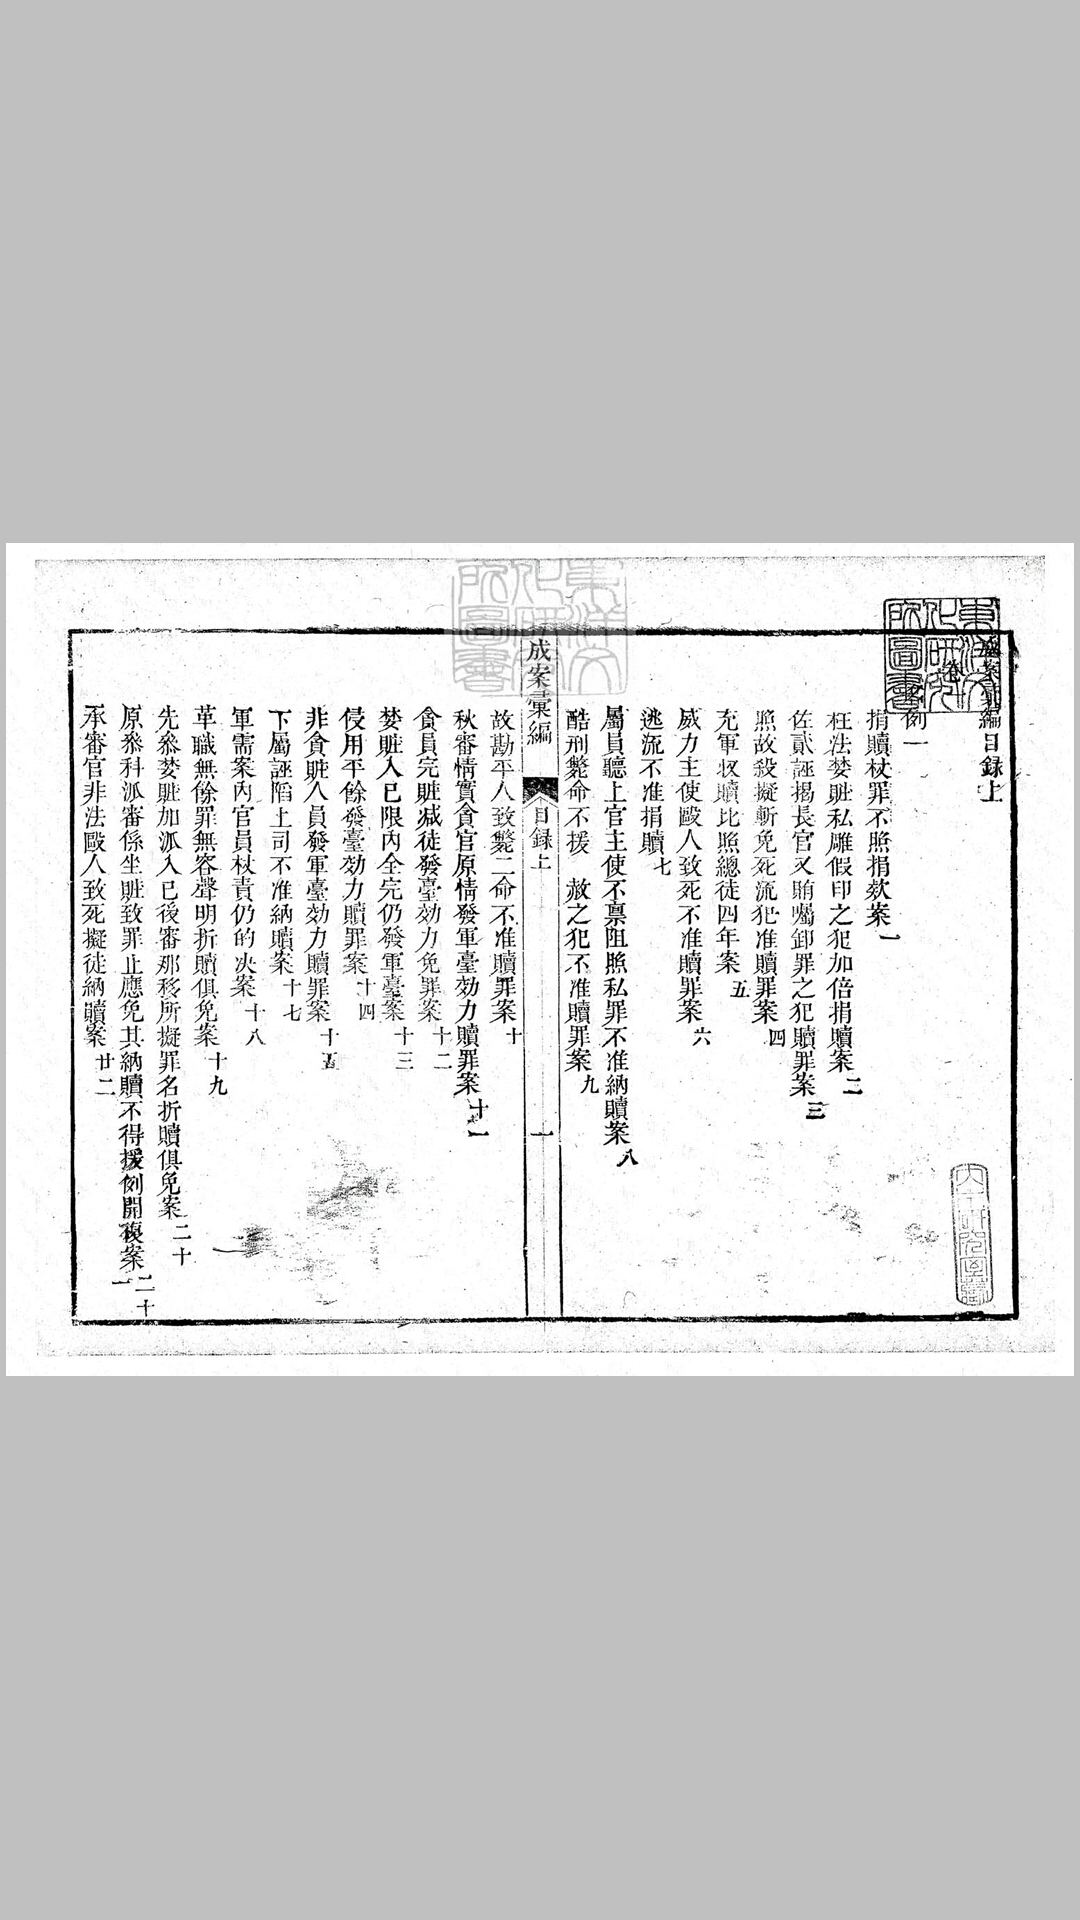 成案彙編目錄上
卷
名例一
捐贖杖罪不照捐欵案 一
枉法婪賍私雕假印之犯加倍捐贖案 二
佐貳誣揭長官又賄囑卸罪之犯贖罪案 三
照故殺擬斬免死流犯准贖罪案 四
充軍収贖比照總徒四年案 五
威力主使毆人致死不准贖罪案 六
逃流不准捐贖 七
屬員聽上官主使不稟阻照私罪不准納贖案 八
酷刑斃命不援 赦之犯不准贖罪案 九
成案彙編 目録上 一
故勘平人致斃二命不准贖罪案 十
秋審情實貪官原情發軍臺効力贖罪案 十一
貪員完賍减徒發臺効力免罪案 十二
婪賍入已限內全完仍發軍臺案 十三
侵用平餘發臺効力贖罪案 十四
非貪賍人員發軍臺効力贖罪案 十五
下屬誣陷上司不准納贖案 十七
軍需案內官員杖責仍的决案 十八
革職無餘罪無容聲明折贖俱免案 十九
先叅婪賍加派入已後審那移所擬罪名折贖俱免案 二十
原叅科派審係坐賍致罪止應免其納贖不得援例開複案 二十一
承審官非法毆人致死擬徒納贖案 廿二
東洋文化研究所圖書
大木研究室藏